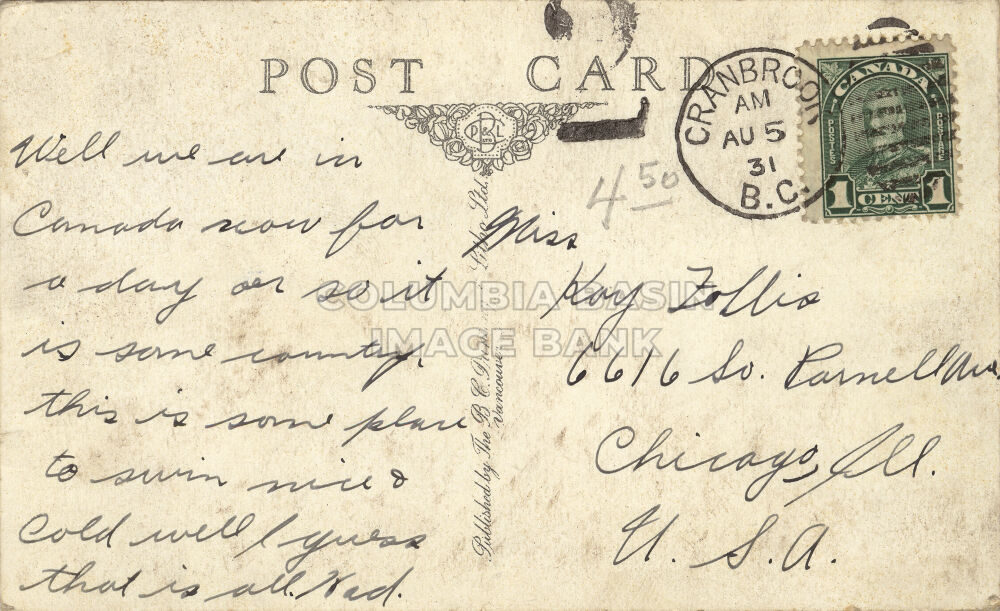 POST CARD
B
P & L
LTD.
CRANBROOK
AM
AU 5
31
B.C.
CANADA
POSTES
POSTAGE
1 CENT 1
4 50
Well we are in
Canada now for
a day or so it
is some country,
this is some place
to swim nice &
cold well I guess
that is all.
Published by The B. C. Litho. Ltd.
Vancouver
Miss
Kay Follis
6616 So. Parnell Ave
Chicago, Ill.
U. S. A.
COLUMBIA BASIN
IMAGE BANK